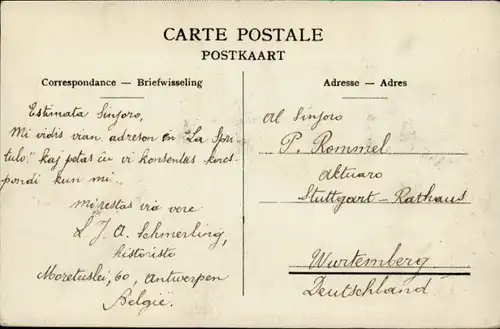 CARTE POSTALE
POSTKAART
Correspondance — Briefwisseling
Estimata Sinjoro,
Mi vidis vian adreson en "La Spri
tulo" kaj petas ĉu vi konsentas kores
pondi kun mi..
Mi restas via vere
L. J. A. Schmerling,
historisto
Moretuslei, 60, Antwerpen
België.
Adresse — Adres
Al Sinjoro
P. Rommel
Aktuaro
Stuttgart - Rathaus
Wurtemberg
Deutschland.